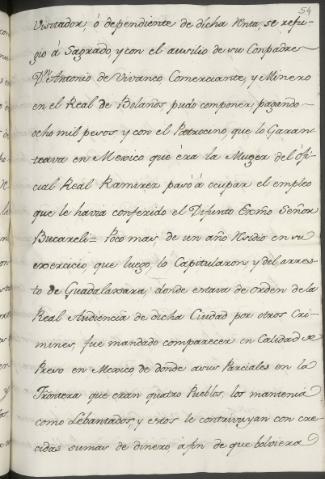 54
Visitador, ó dependiente de dicha Renta, se refu-
gio a Sagrado, y con el auxilio de su Conpadre
Dn Antonio de Vivanco Comerciante, y Minero
en el Real de Bolaños pudo componer, pagando
ocho mil pesos y con el Patrocino, que lo Garan-
teava en Mexico que éra la Muger del ofi-
cial Real Ramirez paso à ocupar el empleo
que le havia conferido el Difunto Exmo Señor
Bucareli = Poco mas de un año Residio en su
exercicio que luego, lo Capitularon, y del arres-
to de Guadalaxara, donde estava de orden de la
Real Audiencia de dicha Ciudad por otros Cri-
mines, fue mandado comparecer en Calidad de
Preso en Mexico de donde a sus Parciales en la
Frontera que eran quatro Pueblos, los mantenia
como Lebantados, y estos le contrivuyan con cre-
cidas sumas de dinero, á fin de que bolviera